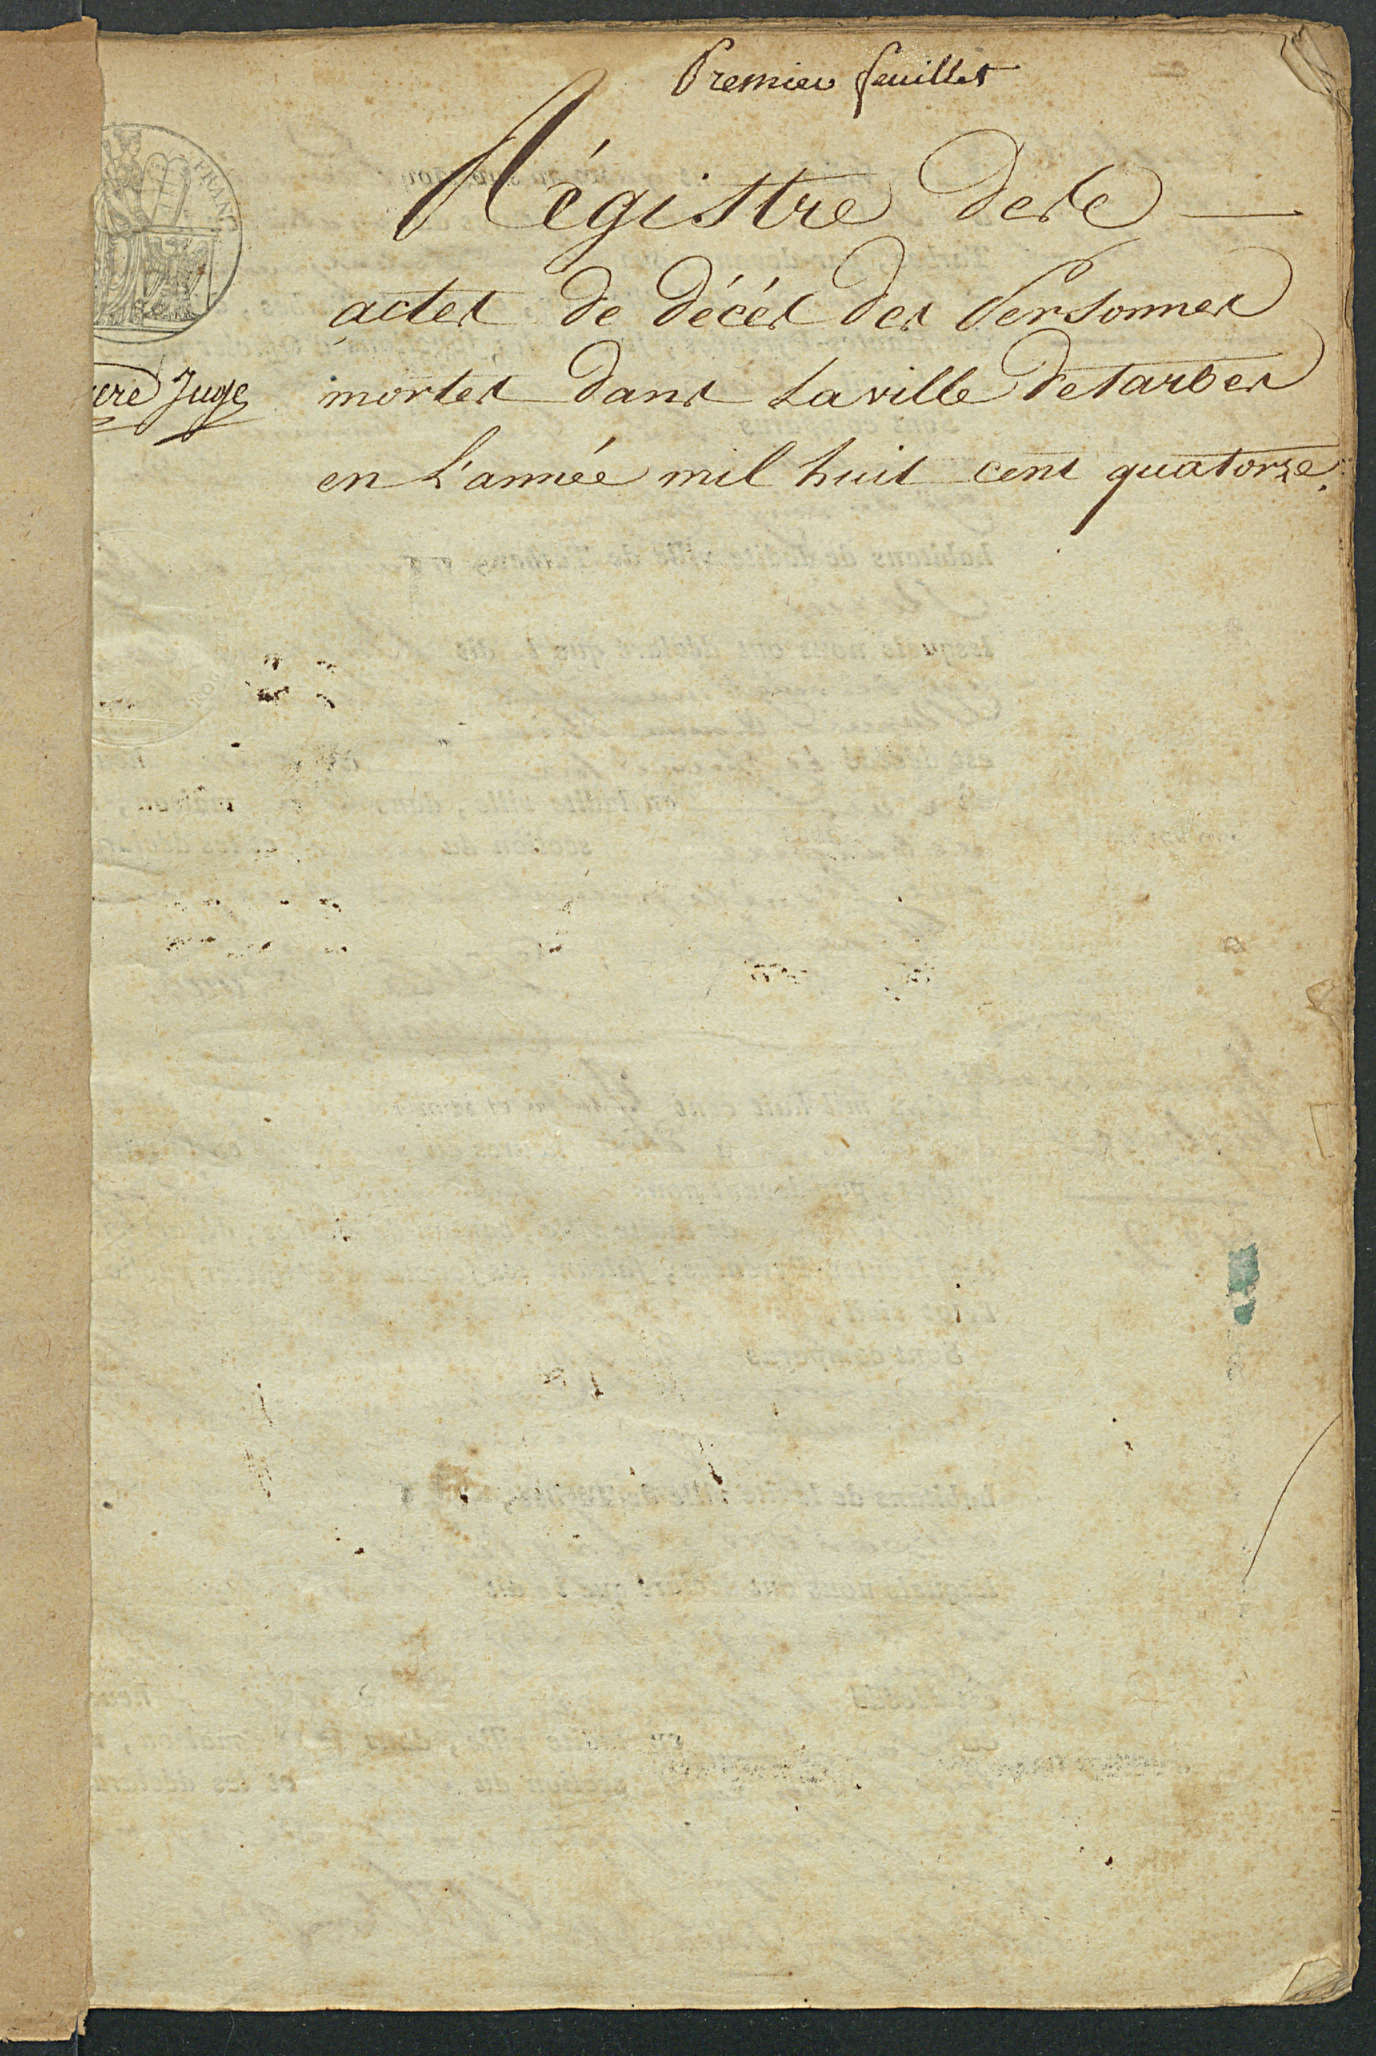 Premier feuillet
Régistre des
actes de décés des Personnes
mortes dans La ville de tarbes
en L'année mil huit cent quatorze.
FRANC
Juge